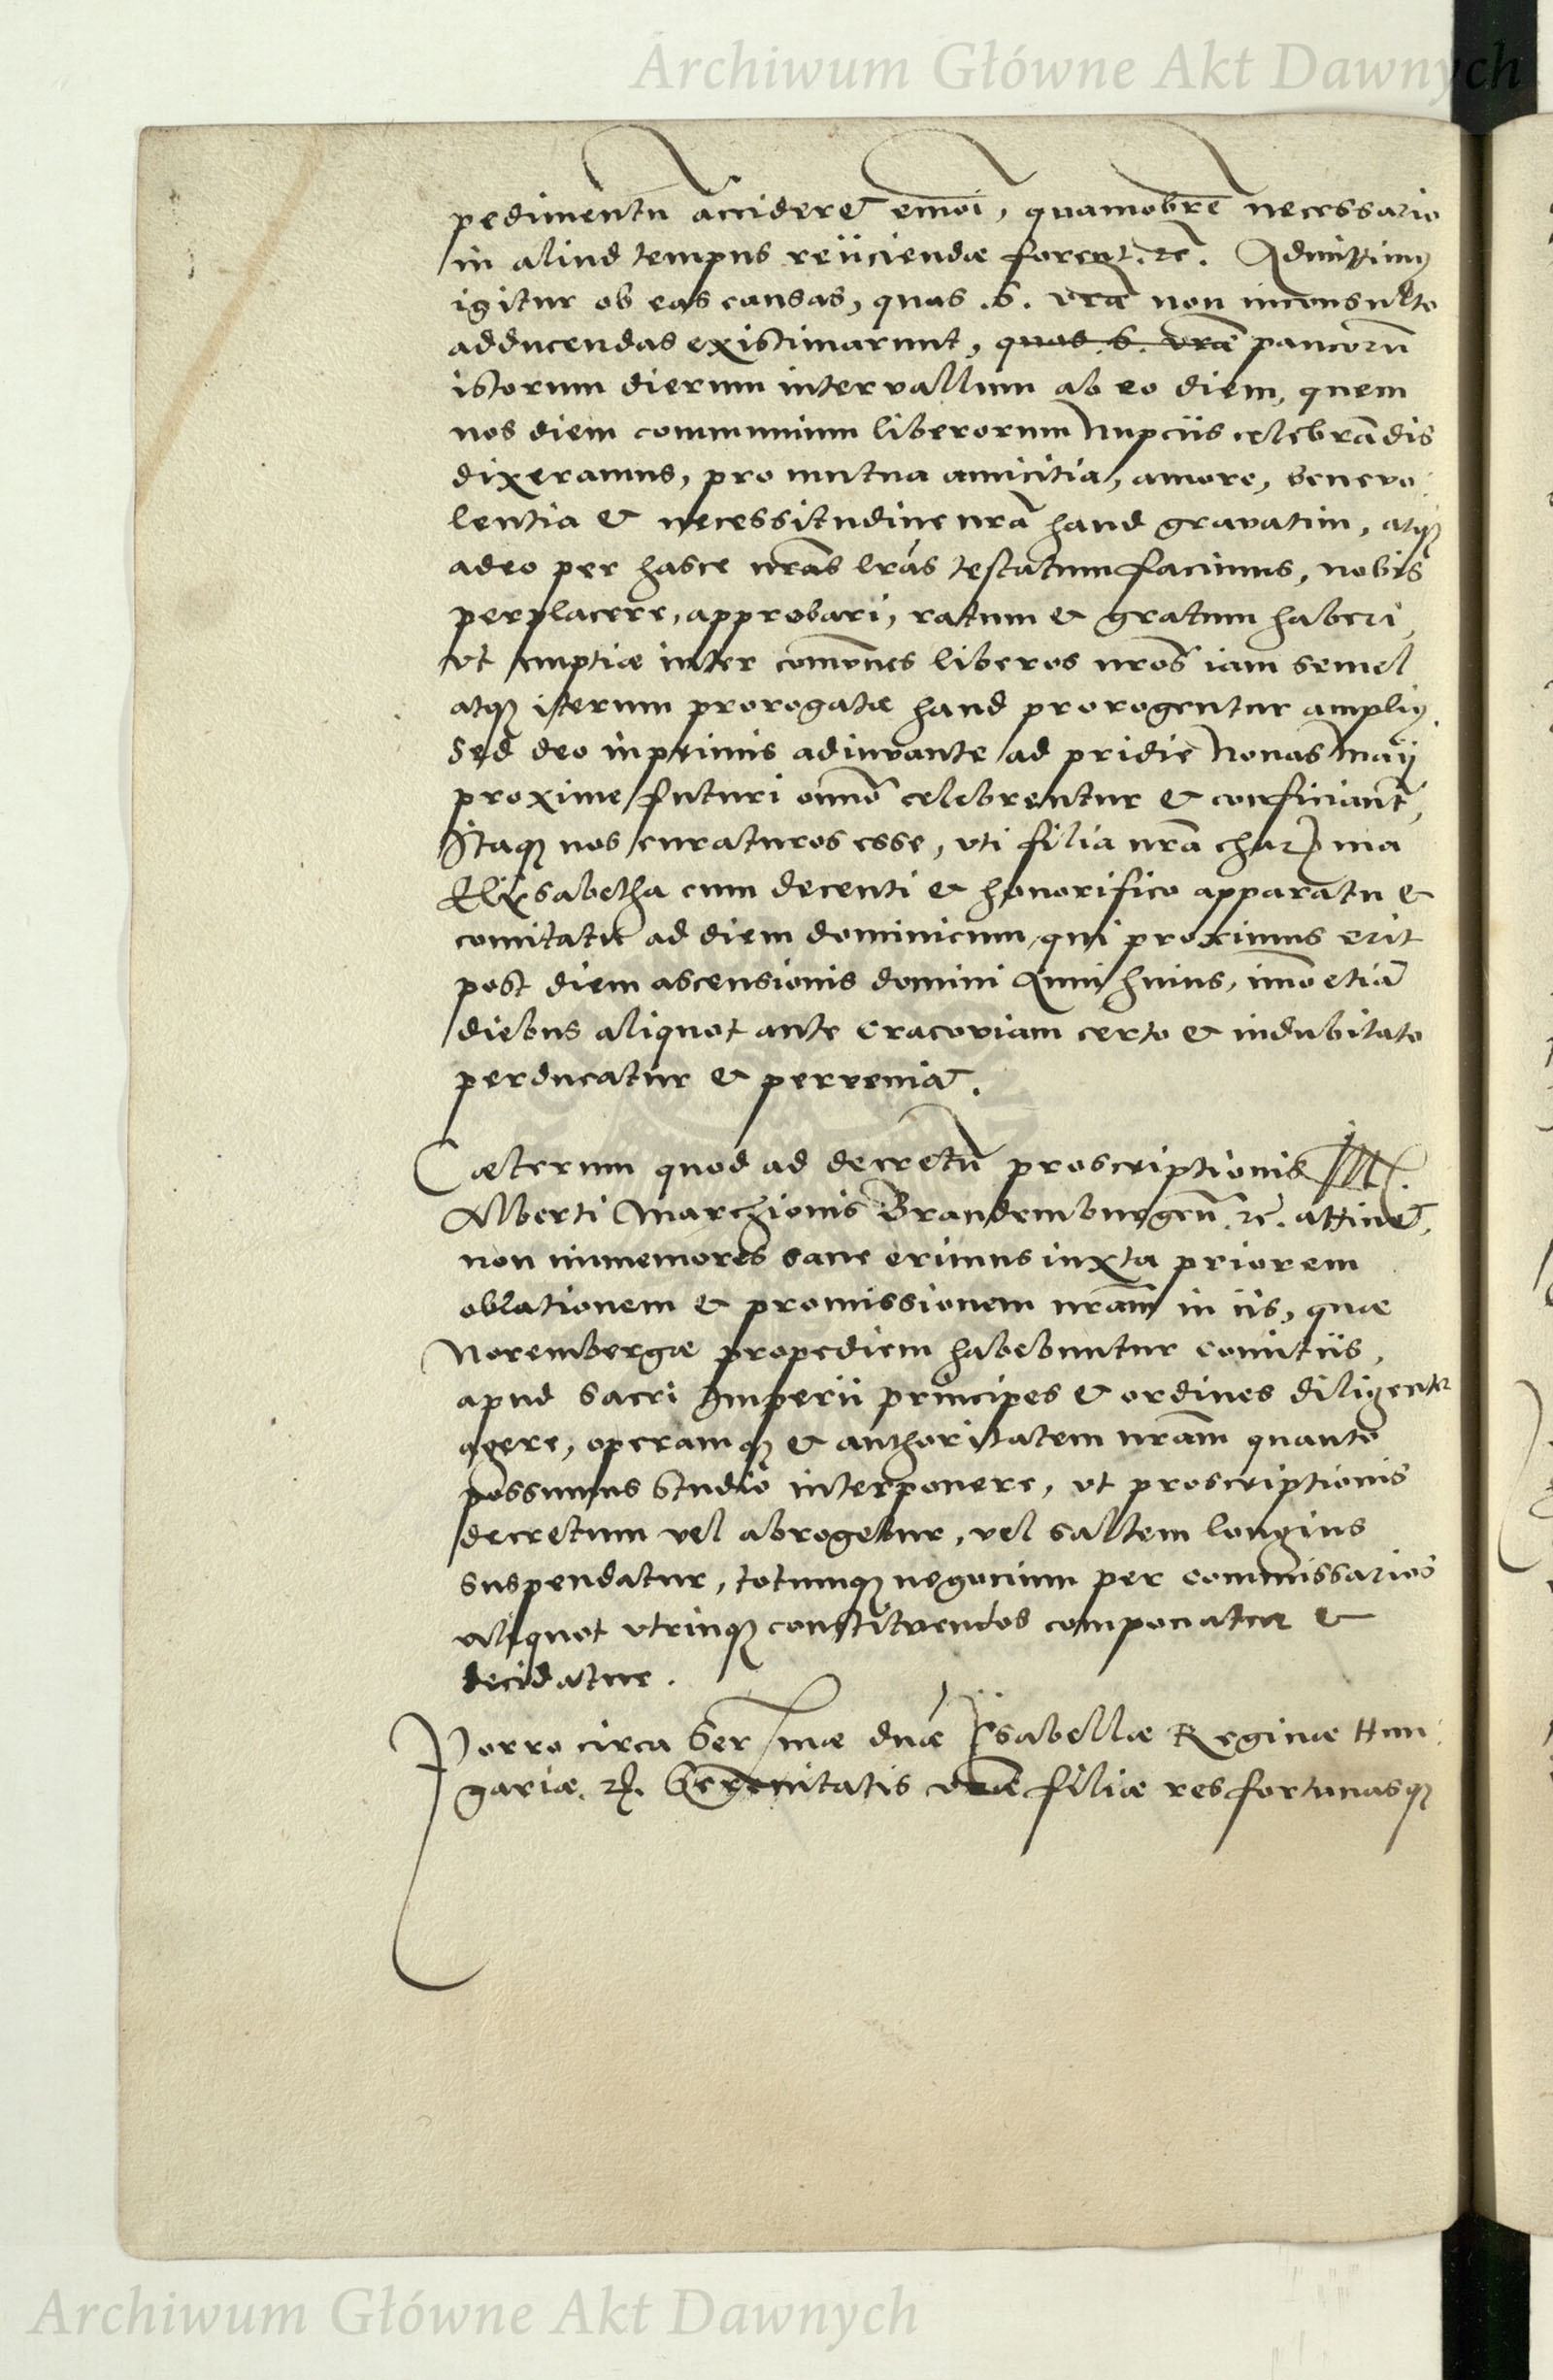 Archiwum Główne Akt Dawnych
pedimentũ accideret em̃oi, quamobrẽ necessario
in aliud tempus reiiciendæ forent. ꝛc̃. Admittimꝰ
igitur ob eas causas, quas .S. vr̃a non inconsulto
adducendas existimarunt, quas .S. vr̃æ paucorũ
istorum dierum intervallum ab eo diem, quem
nos diem communium liberorum Nupciis celebrãdis
dixeramus, pro mutua amicitia, amore, benevo:
lentia & necessitudine nr̃a haud gravatim, atqꝫ
adeo per hasce nr̃as lr̃as testatum facimus, nobis
perplacere, approbari, ratum & gratum haberi,
vt nuptiæ inter com̃unes liberos nr̃os iam semel
atqꝫ iterum prorogatæ haud prorogentur ampliꝰ.
Sed deo inprimis adiuvante ad pridie Nonas Maij
proxime futuri om̃o celebrentur & conficiant̃,
Itaqꝫ nos curaturos esse, vti filia nr̃a char̃ma
Elisabetha cum decenti & honorifico apparatu &
comitatu ad diem dominicum, qui proximus erit
post diem ascensionis domini Anni huius, imo etiã
diebus aliquot ante Cracoviam certo & indubitato
perducatur & perveniat.
Cæterum quod ad decretũ proscriptionis Ill.
Alberti Marchionis Brandemburgeñ. ꝛc̃. attinet,
non immemores sane erimus iuxta priorem
oblationem & promissionem nr̃am in iis, quæ
Norembergæ propediem habebuntur comitiis,
apud Sacri Imperii principes & ordines diligentr̃
agere, operamqꝫ & authoritatem nr̃am quanto
possumus studio interponere, vt proscriptionis
decretum vel abrogetur, vel saltem longius
suspendatur, totumqꝫ negocium per commissarios
aliquot vtrinqꝫ constituendos componatur &
decidatur.
Porro circa Ser.mæ dn̄æ Isabellæ Reginæ Hun:
gariæ. ꝛc. Serenitatis vr̃æ filiæ res fortunasqꝫ
Archiwum Główne Akt Dawnych